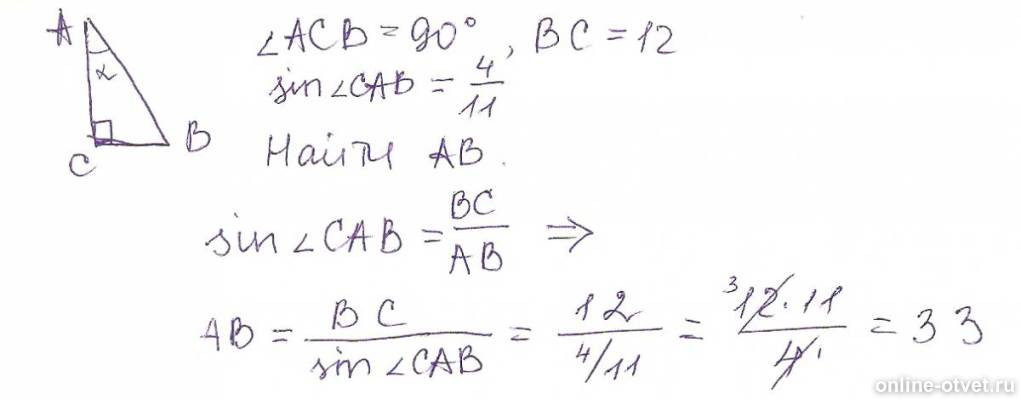 A
α
C
B
∠ACB = 90°, BC = 12
sin∠CAB = 4/11
Найти AB.
sin∠CAB = BC/AB ⇒
AB = BC/sin∠CAB = 12/(4/11) = 12·11/4 = 33
3
1
online-otvet.ru